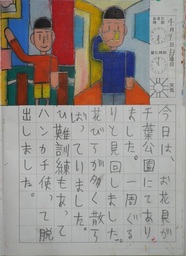 4月7日日曜日
天気
今日は、お花見が
千葉公園にてあり
ました。一周ぐる
りと見回しました。
花びらが多く散ら
ばってりました。
ひ難訓練もあって
ハンカチ使って脱
出しました。